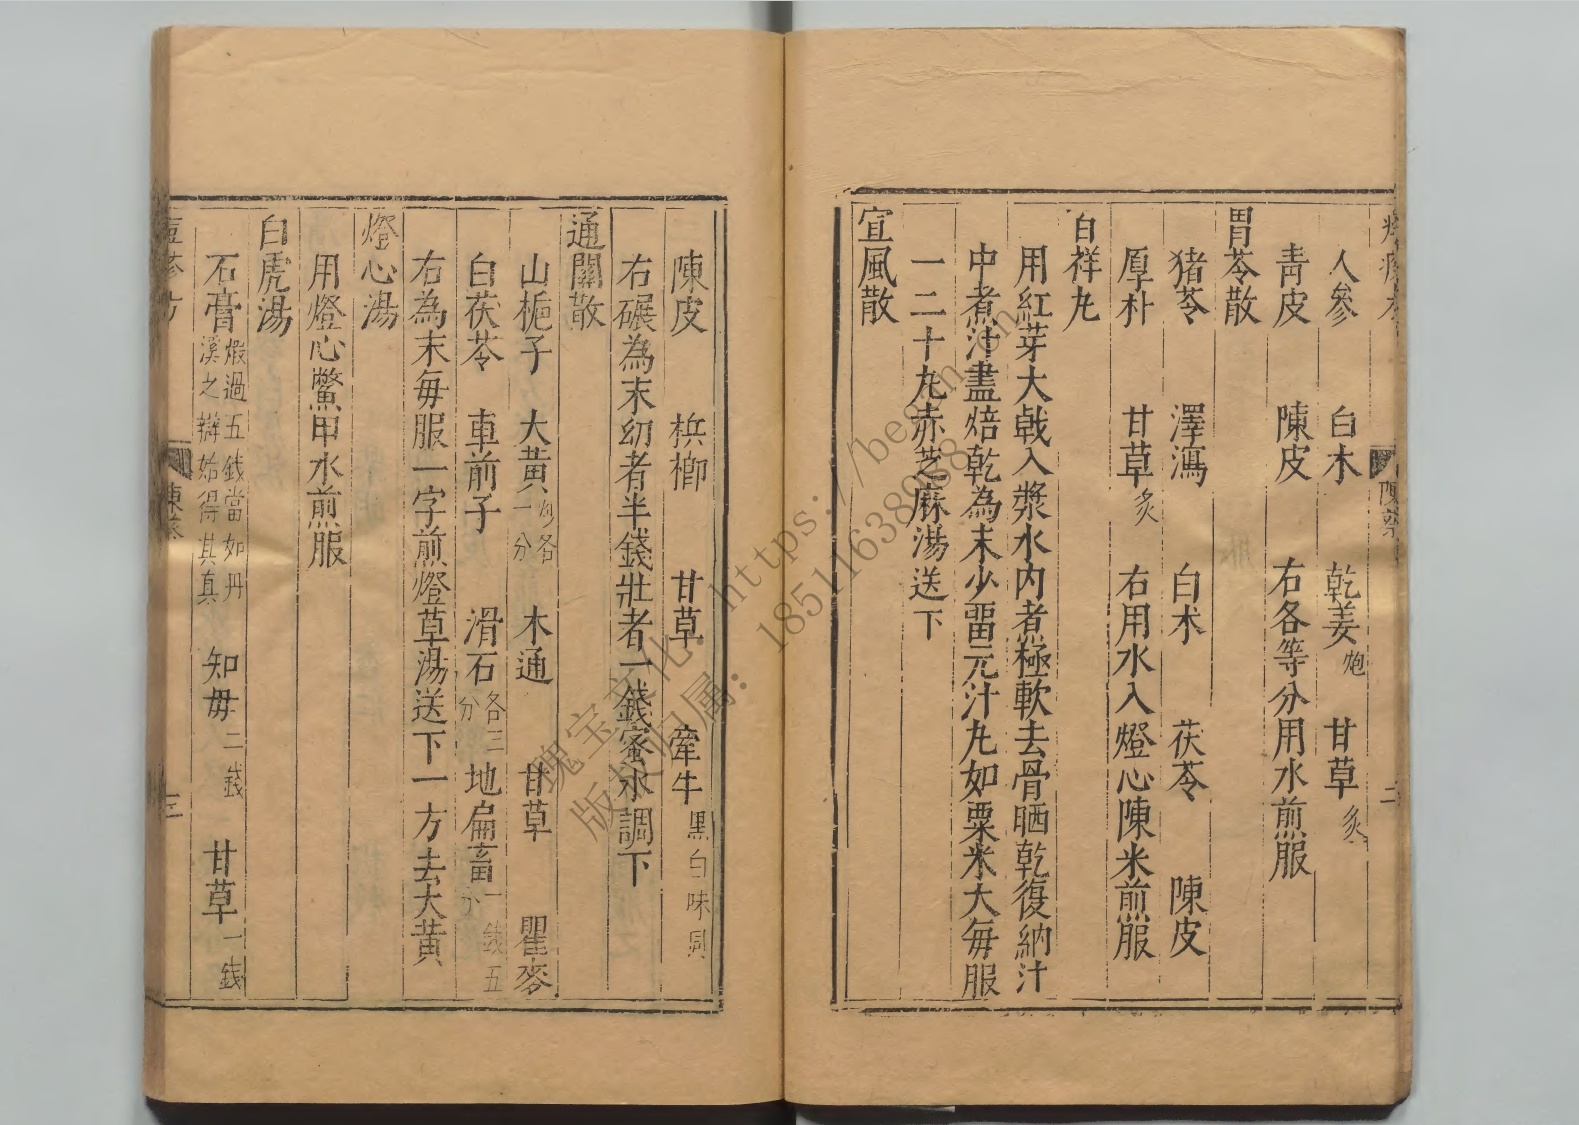 人參 白术 乾姜炮 甘草炙
青皮 陳皮 右各等分用水煎服
胃苓散
猪苓 澤瀉 白术 茯苓 陳皮
厚朴 甘草炙 右用水入燈心陳米煎服
白祥丸
用紅芽大戟入漿水内煮極軟去骨晒乾復納汁
中煮汁盡焙乾為末少畱元汁丸如粟米大每服
一二十丸赤芝麻湯送下
宣風散
陳皮 梹榔 甘草 牽牛黑白味與
右碾為末幼者半錢壯者一錢蜜水調下
通關散
山梔子 大黄炒各一分 木通 甘草 瞿麥
白茯苓 車前子 滑石各三分 地扁畜一錢五分
右為末每服一字煎燈草湯送下一方去大黄
燈心湯
用燈心鱉甲水煎服
白虎湯
石膏煆過五錢當如丹溪之辯始得其真 知毋二錢 甘草一錢
三
瑰宝文化:https://
版权归属：18511638068